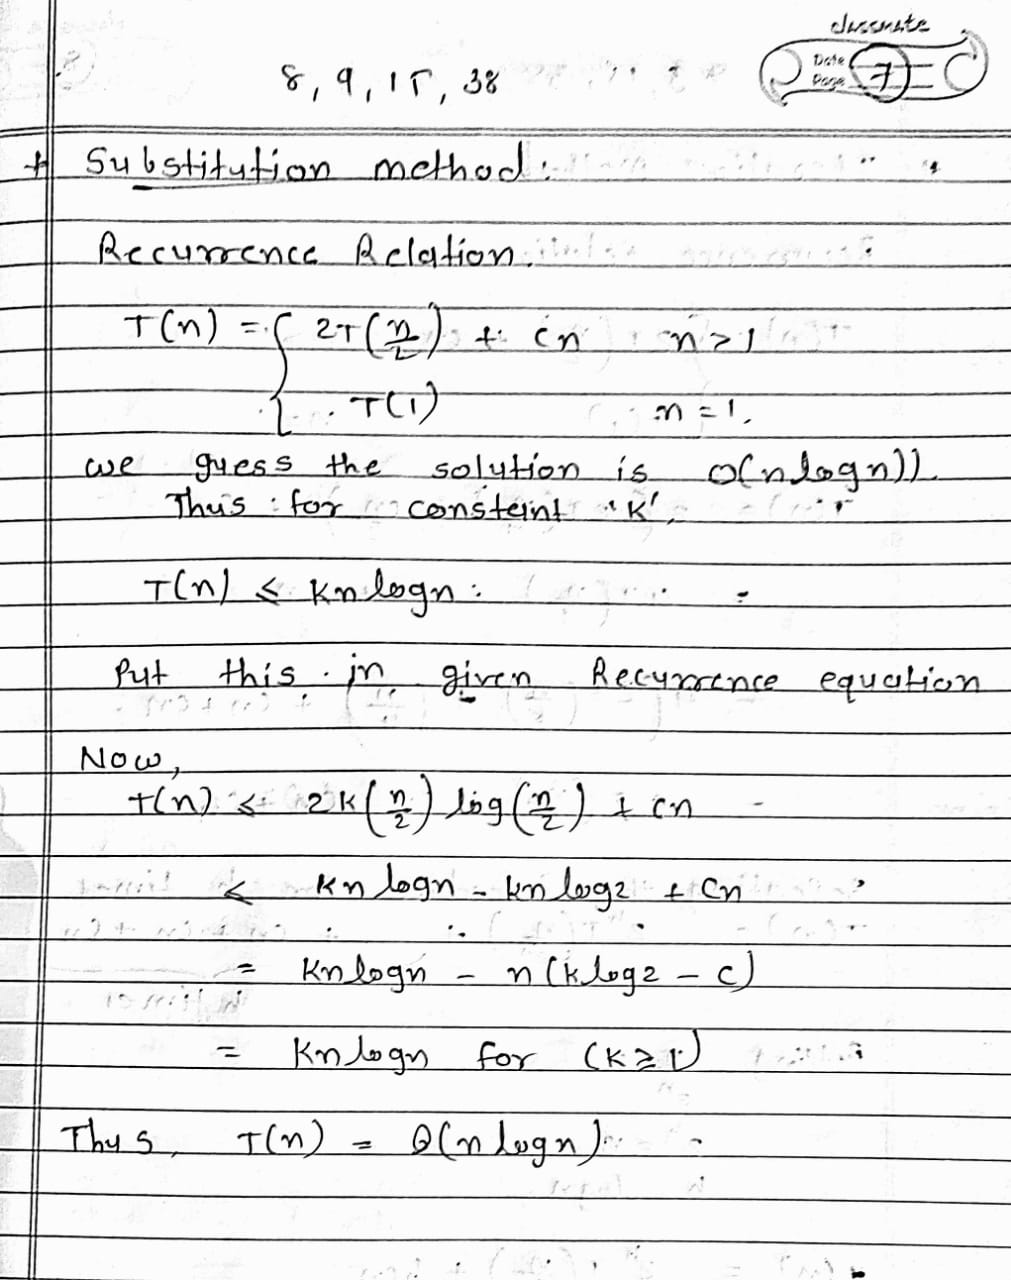 classmate
Date
Page 7
8, 9, 15, 38
* Substitution method:
Recurrence Relation.
T(n) = { 2T(n/2) + cn n>1
T(1) n=1.
we guess the solution is O(n logn)).
Thus for constant 'K',
T(n) ≤ kn logn.
Put this in given Recurrence equation
Now,
T(n) ≤ 2K(n/2) log(n/2) + cn
≤ kn logn - kn log2 + cn
= Kn logn - n(k log2 - c)
= Kn logn for (K≥1)
Thus, T(n) = θ(n logn)